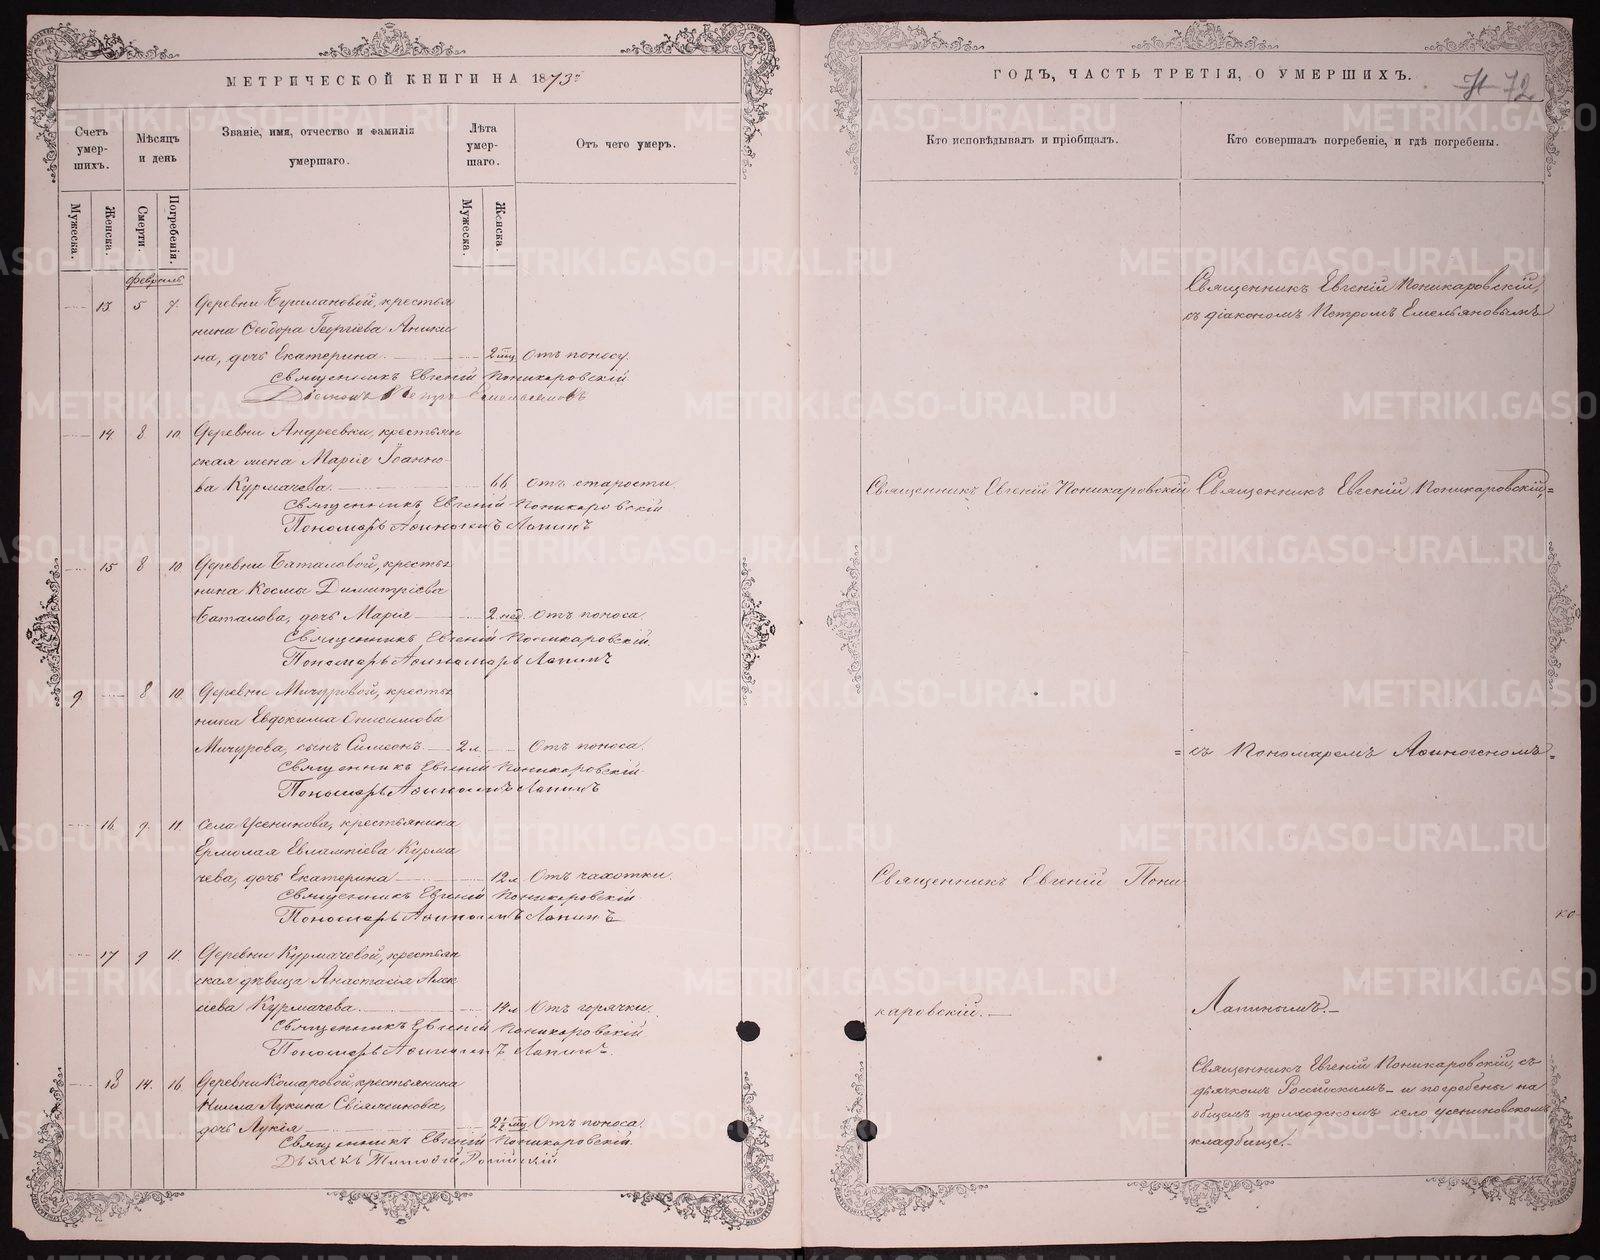 МЕТРИЧЕСКОЙ КНИГИ НА 1873й
Счетъ умер-шихъ.
Мѣсяцъ и день
Званіе, имя, отчество и фамилія
умершаго.
Лѣта умер-шаго.
Отъ чего умеръ.
Мужеска.
Женска.
Смерти.
Погребенія.
Мужеска.
Женска.
Февраль
13. 5 7. Деревни крестья
нина Ѳеодора Георгіева Аники
на, дочь Екатерина. 2 мц. Отъ поносу.
Священникъ Евгеній Поникаровскій
Діаконъ Петръ Емельяновъ
14. 8 10. Деревни Андреевки, крестьян
ская жена Марія Іоанно-
ва Курмачева. 66 Отъ старости.
Священникъ Евгеній Поникаровскій
Пономарь Аѳиногенъ Лапинъ
15 8 10 Деревни Баталовой, кресть
нина Косма Димитріева
Баталова, дочь Марія 2 нед. Отъ поноса.
Священникъ Евгеній Поникаровскій.
Пономарь Лапинъ
9 8 10 Деревни Мичуровой, кресть
нина Евдокима Онисимова
Мичурова, сынъ Симеонъ. 2 л. Отъ поноса.
Священникъ Евгеній Поникаровскій
Пономарь Аѳиногенъ Лапинъ
16. 9. 11. Села Усенинова, крестьянина
Ермолая Евлампіева Курма
чева, дочь Екатерина 12 л Отъ чахотки.
Священникъ Евгеній Поникаровскій
Пономарь Аѳиногенъ Лапинъ
17 9 11. Деревни Курмачевой, крестьян
ская дѣвица Анастасія Алек
сіева Курмачева. 14 л Отъ горячки.
Священникъ Евгеній Поникаровскій
Пономарь Аѳиногенъ Лапинъ.
18 14. 16 Деревни Комаровой, крестьянина
Лукина
дочь Лукія 2½ мц. Отъ поноса.
Священникъ Евгеній Поникаровскій.
Дьячекъ Россійскій
ГОДЪ, ЧАСТЬ ТРЕТІЯ, О УМЕРШИХЪ.
71 72
Кто исповѣдывалъ и пріобщалъ.
Кто совершалъ погребеніе, и гдѣ погребены.
Священникъ Евгеній Поникаровскій,
съ діакономъ Петромъ Емельяновымъ
Священникъ Евгеній Поникаровскій Священникъ Евгеній Поникаровскій=
= съ Пономаремъ Аѳиногеномъ =
Священникъ Евгеній Пони
ко-
каровскій.— Лапинымъ.—
Священникъ Евгеній Поникаровскій, съ
дьячкомъ Россійскимъ— и погребены на
общемъ приходскомъ село усениновскомъ
кладбище.—
METRIKI.GASO-URAL.RU